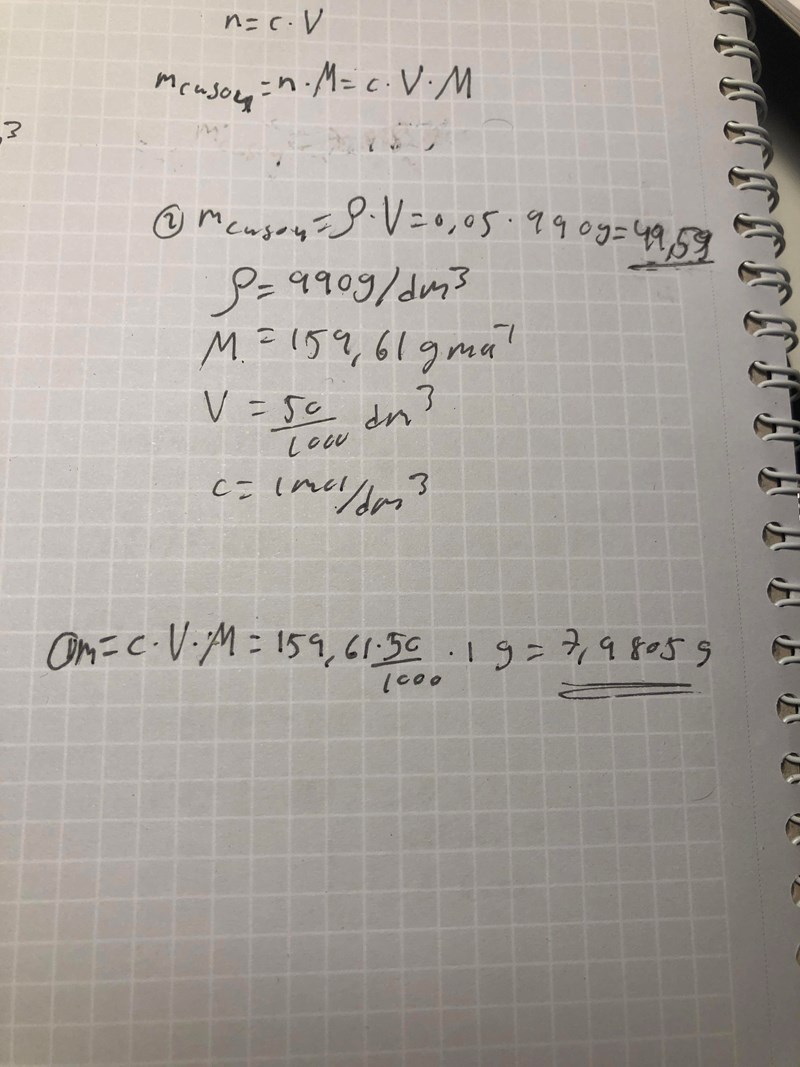 n = c · V
m_CuSO4 = n · M = c · V · M
3
② m_CuSO4 = ρ · V = 0,05 · 990g = 49,5g
ρ = 990g/dm³
M = 159,61 g mol⁻¹
V = 50/1000 dm³
c = 1 mol/dm³
① m = c · V · M = 159,61 · 50/1000 · 1 g = 7,9805 g